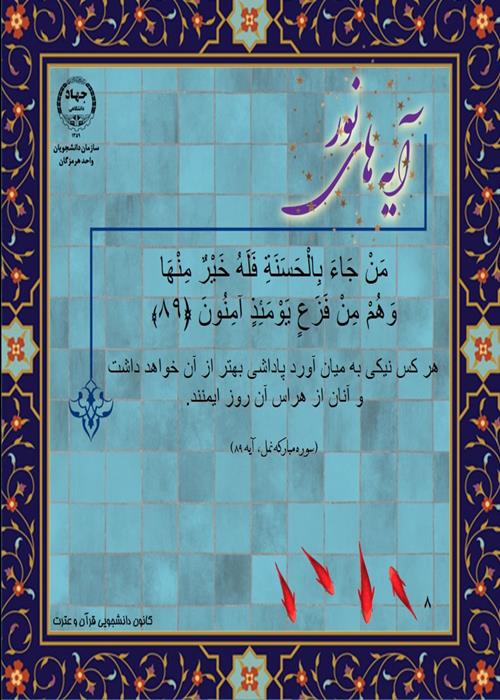 جهاد
دانشگاهی
۱۳۵۹
سازمان دانشجویان
واحد هرمزگان
آیه های نور
مَنْ جَاءَ بِالْحَسَنَةِ فَلَهُ خَيْرٌ مِنْهَا
وَهُمْ مِنْ فَزَعٍ يَوْمَئِذٍ آمِنُونَ ﴿۸۹﴾
هر کس نیکی به میان آورد پاداشی بهتر از آن خواهد داشت
و آنان از هراس آن روز ایمنند.
(سوره مبارکه نمل، آیه ۸۹)
۸
کانون دانشجویی قرآن و عترت